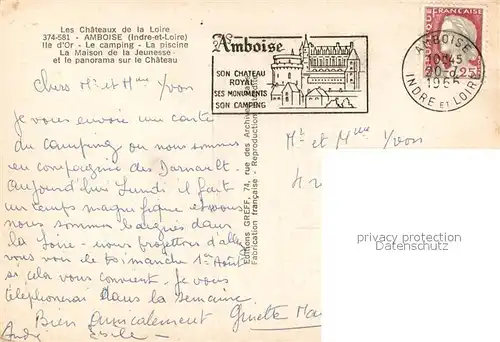 Les Châteaux de la Loire
374-581 - AMBOISE (Indre-et-Loire)
Ile d'Or - Le camping - La piscine
La Maison de la Jeunesse
et le panorama sur le Château
Amboise
SON CHATEAU
ROYAL
SES MONUMENTS
SON CAMPING
FRANÇAISE
0,25
AMBOISE
10H45
INDRE ET LOIRE
Chers Mr et Mme Yvon
Je vous envoie une carte
du camping où nous sommes
en compagnie des
Aujourd'hui Lundi il fait
un temps magnifique et nous
nous sommes baignés dans
la Loire - nous projetons d'aller
vous voir le dimanche 1er Août
si cela vous convient. Je vous
téléphonerai dans la semaine
Bien amicalement Ginette
André
Mr et Mme Yvon
Editions GREFF, 74, rue des Archives
Fabrication française - Reproduction
copyright protected
Datenschutz